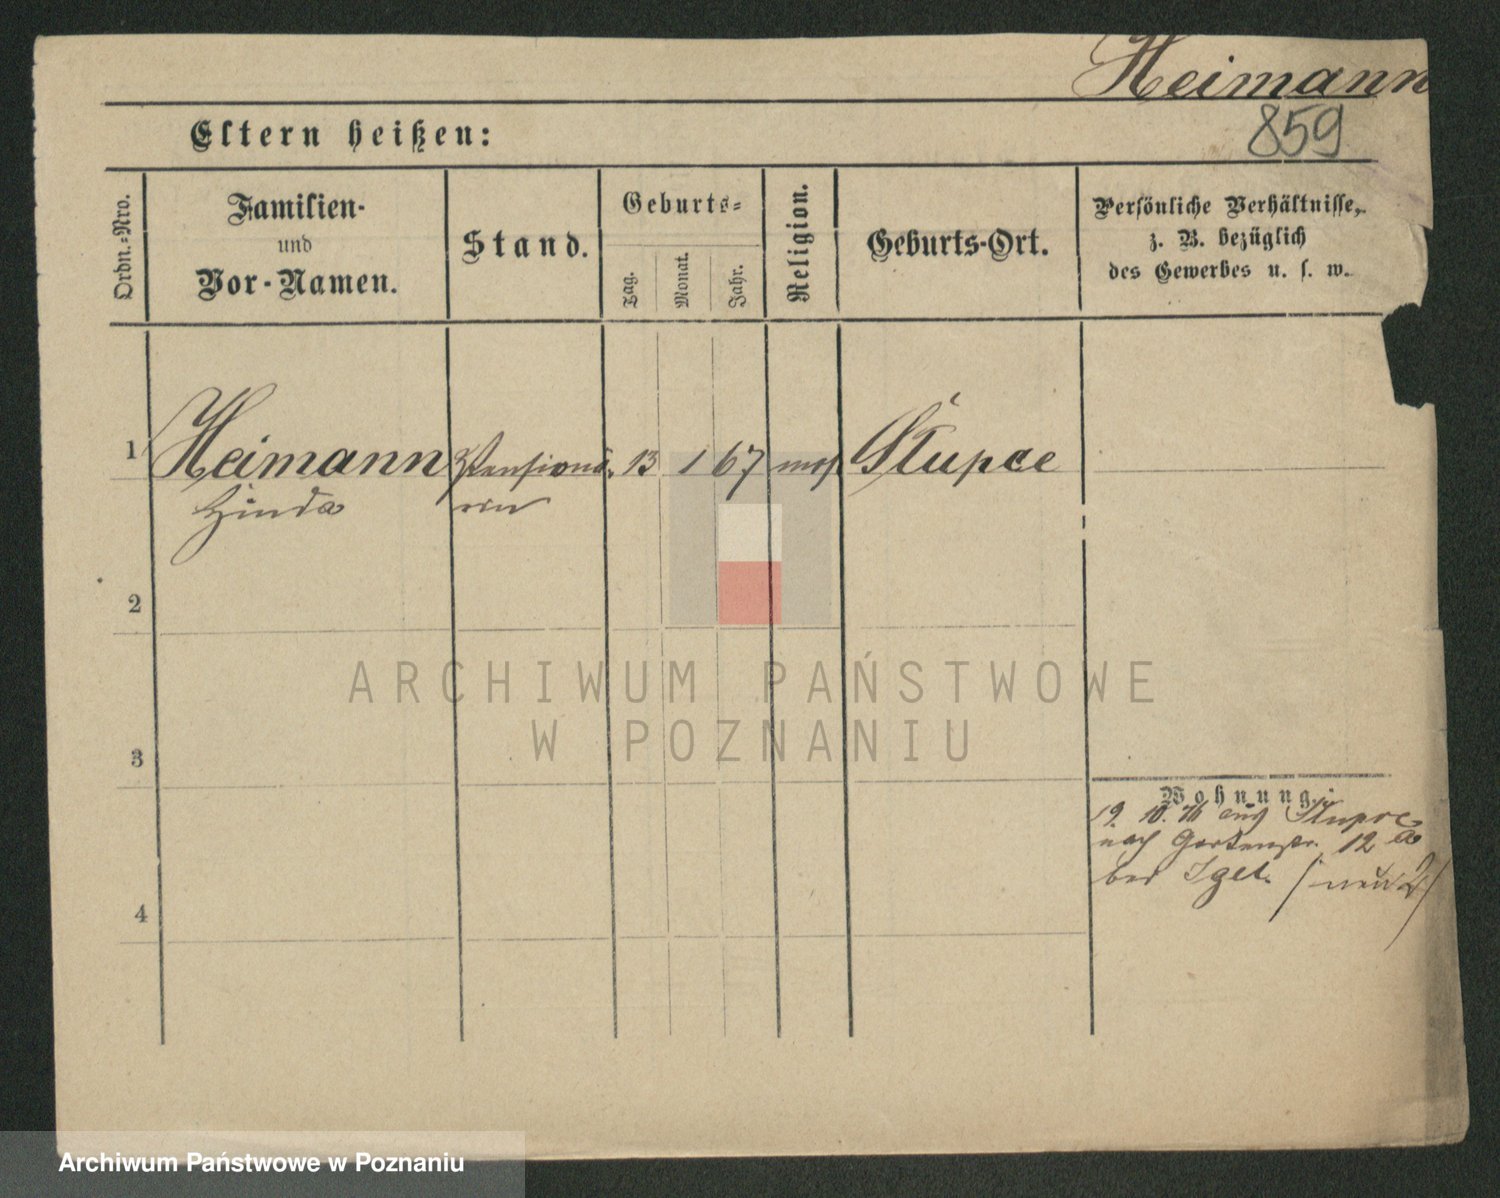 Heimann
859
Eltern heißen:
Ordn.=Nro.
Familien-
und
Vor-Namen.
Stand.
Geburts-
Tag.
Monat.
Jahr.
Religion.
Geburts-Ort.
Persönliche Verhältnisse,
z. B. bezüglich
des Gewerbes u. s. w.
1 Heimann Pensionä- 13 1 67 mos. Stupce
Hinda rin
2
3
4
Wohnung:
19. 10. 76 aus Stupce
nach Gartenstr. 12 a
bei Igel. / neu 2 /
ARCHIWUM PAŃSTWOWE
W POZNANIU
Archiwum Państwowe w Poznaniu